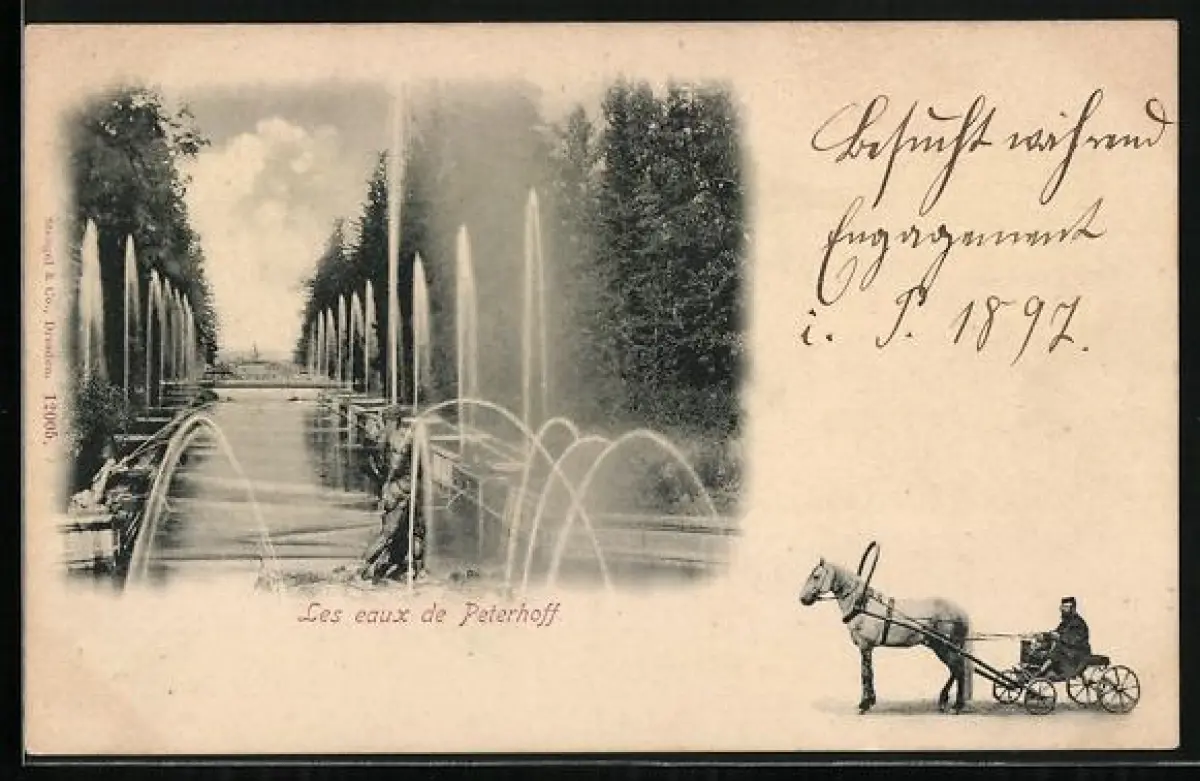 Besucht während
Engagement
i. P. 1897.
Stengel & Co., Dresden 12005.
Les eaux de Peterhoff.